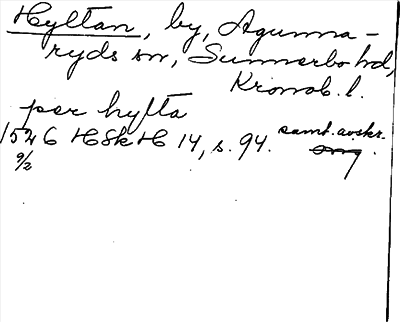 Hyltan, by, Agunna-
ryds sn, Sunnerbo hd,
Kronob. l.
per hylta
1546 HSkH 14, s. 94. samt. avskr.
9/2